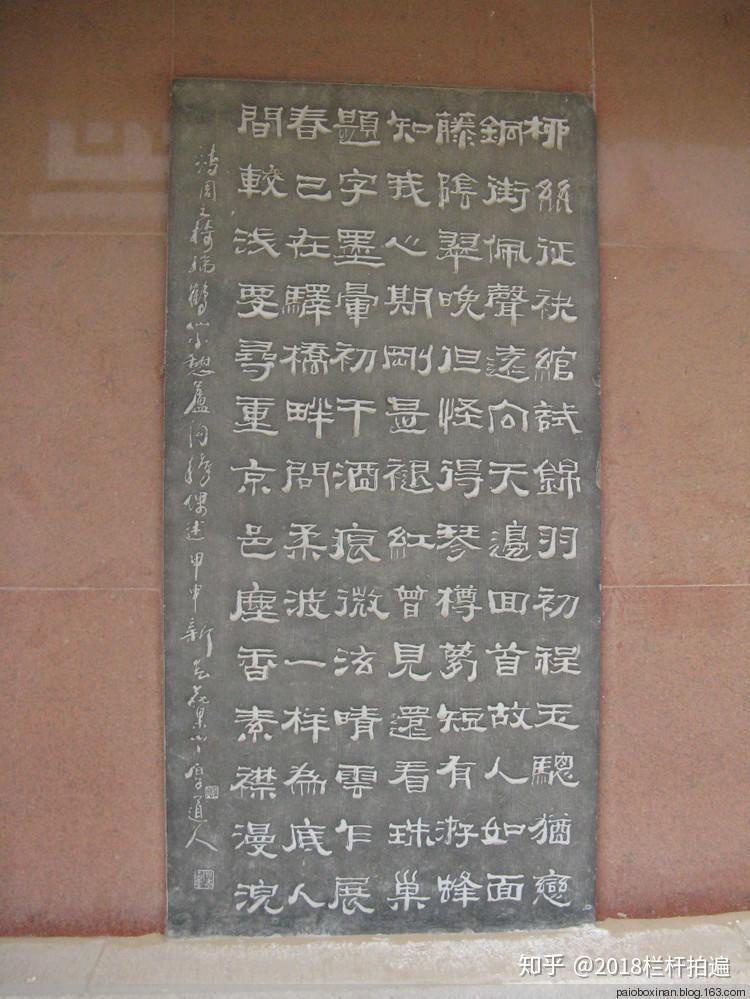 柳絲征袂綰試錦羽初程玉驄猶戀
銅街佩聲遠向天邊回首故人如面
藤陰翠晚但怪得琴樽夢短有游蜂
知我心期剛是褪紅曾見還看珠巢
題字墨暈初干酒痕微泫晴雲乍展
春已在驛橋畔問柔波一樣為底人
間較浅要尋重京邑塵香素襟漫浣
清周之琦瑞鶴仙憩蘆溝橋偶述甲申新春花果山道人
知乎 @2018栏杆拍遍
paioboxinan.blog.163.com